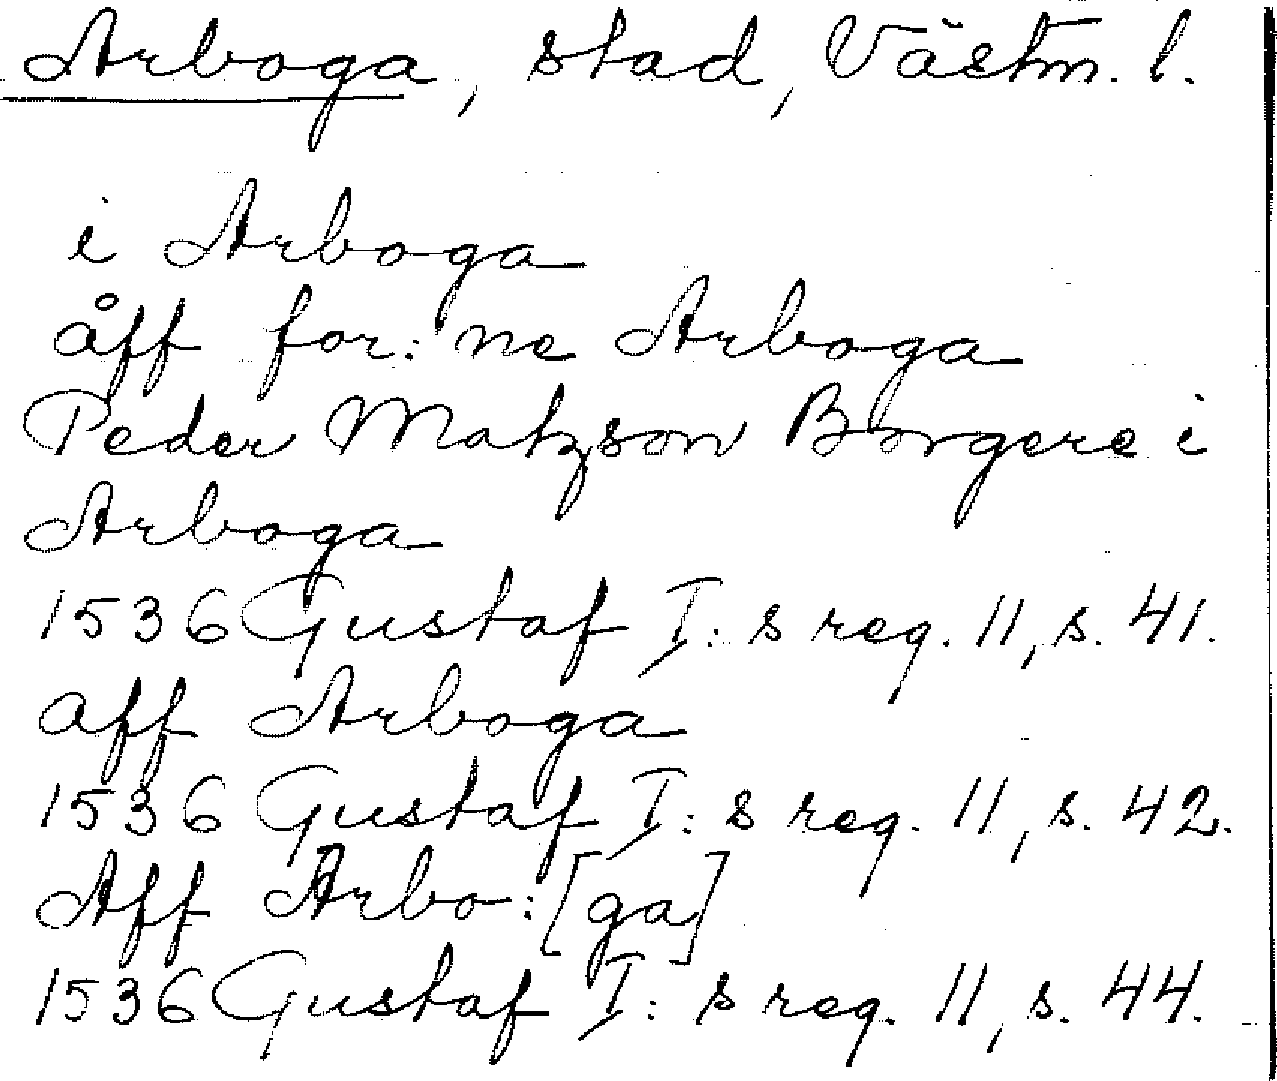 Arboga, stad, Västm. l.
i Arboga
åff for: ne Arboga
Peder Matzson Borgere i
Arboga
1536 Gustaf I: s reg. 11, s. 41.
aff Arboga
1536 Gustaf I: s reg. 11, s. 42.
Aff Arbo: [ga]
1536 Gustaf I: s reg. 11, s. 44.